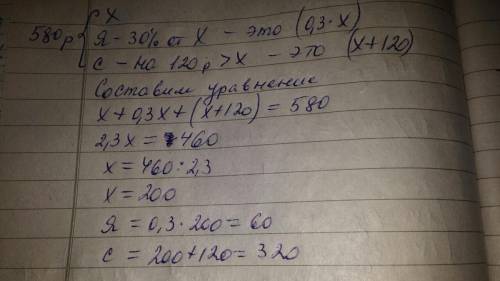 580 р { X
Я - 30% от X - это (0,3·X)
С - на 120 р > X - это (X+120)
Составим уравнение
X + 0,3X + (X+120) = 580
2,3X = 460
X = 460 : 2,3
X = 200
Я = 0,3 · 200 = 60
С = 200 + 120 = 320